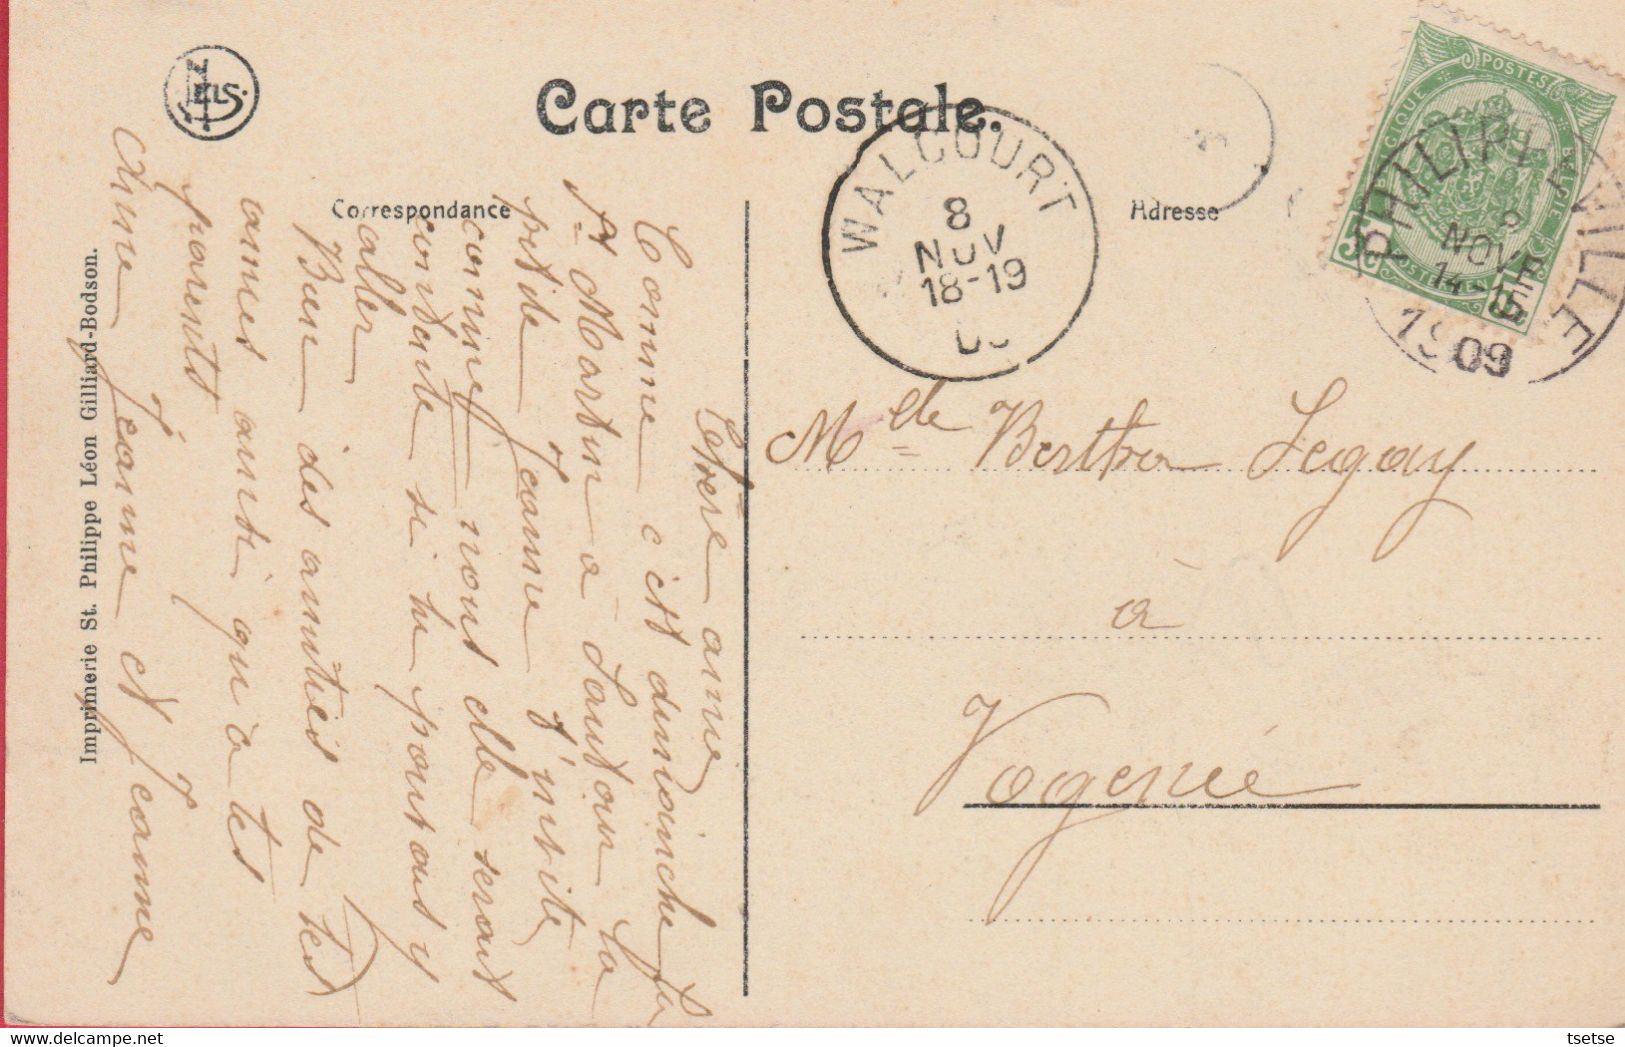 Nels.
Carte Postale.
Correspondance
Adresse
WALCOURT
8
NOV
18-19
POSTES
BELGIE
PHILIPPEVILLE
8
NOV
14-15
1909
Imprimerie St. Philippe Léon Gilliard-Bodson.
Chère amie
Comme c'est dimanche la
St Martin à Sautour la
petite Jeanne t'invite
comme nous elle serait
contente si tu pourrais y
aller
Bien des amitiés de tes
amies ainsi qu'a tes
parents
Jeanne et Jeanne
Mlle Bertha Legay
à
Vogenée
tsetse